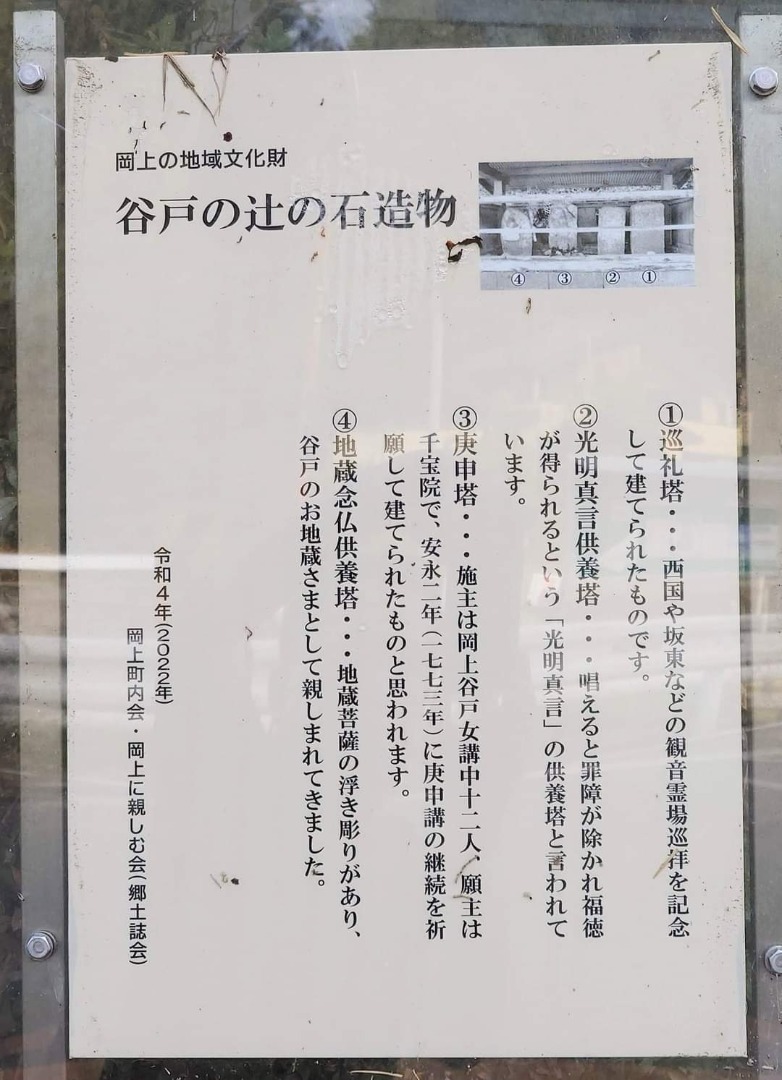 岡上の地域文化財
谷戸の辻の石造物
④ ③ ② ①
①巡礼塔・・・西国や坂東などの観音霊場巡拝を記念
して建てられたものです。
②光明真言供養塔・・・唱えると罪障が除かれ福徳
が得られるという「光明真言」の供養塔と言われて
います。
③庚申塔・・・施主は岡上谷戸女講中十二人、願主は
千宝院で、安永二年(一七七三年)に庚申講の継続を祈
願して建てられたものと思われます。
④地蔵念仏供養塔・・・地蔵菩薩の浮き彫りがあり、
谷戸のお地蔵さまとして親しまれてきました。
令和4年(2022年)
岡上町内会・岡上に親しむ会(郷土誌会)